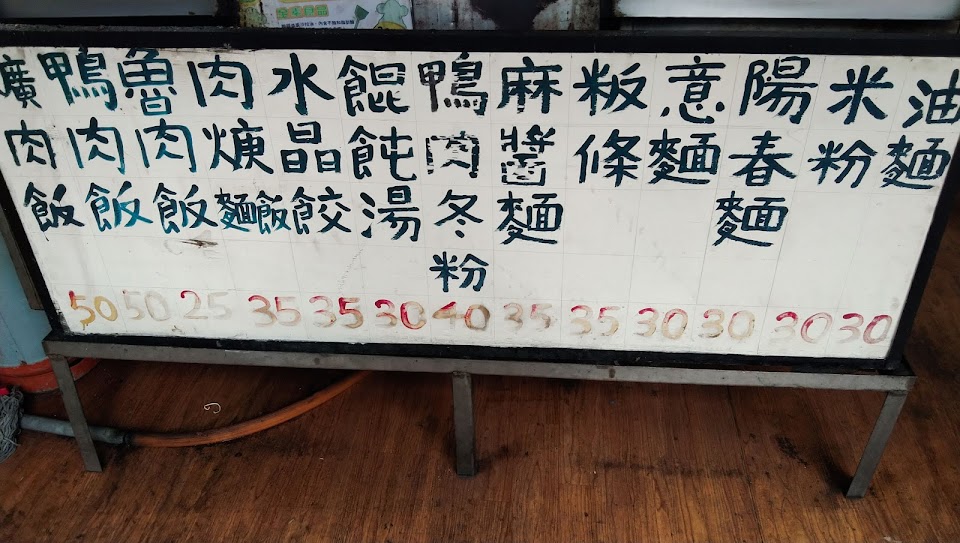 油麵 30
米粉 30
陽春麵 30
意麵 30
粄條 35
麻醬麵 35
鴨肉冬粉 40
餛飩湯 30
水晶餃 35
肉焿麵飯 35
魯肉飯 25
鴨肉飯 50
廣肉飯 50